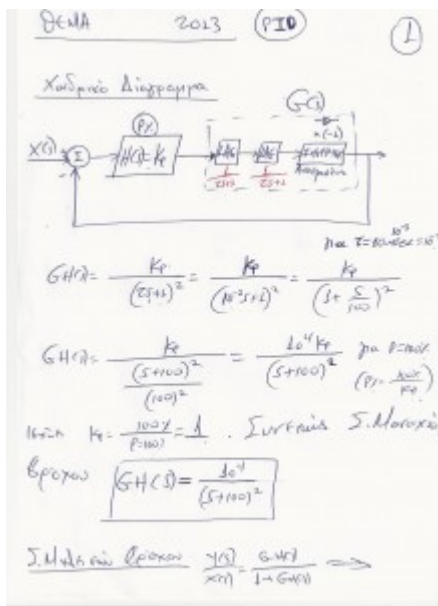 ΘΕΜΑ 2013 (PID) 1
Χονδρικό Διάγραμμα
G(s)
P%
x(-1)
X(s) Σ H(s)=Kp LAG LAG
1/(τs+1) 1/(τs+1)
για τ=10msec=10⁻²
GH(s)= Kp/(τs+1)² = Kp/(10⁻²s+1)² = Kp/(1+s/100)²
GH(s)= Kp/((s+100)²/(100)²) = 10⁴Kp/(s+100)² για P=100%
(P%=100%/Kp)
Kp=100%/P=100%=1. Συνεπώς Σ.Μ
βρόχου GH(s)=10⁴/(s+100)²
βρόχου Y(s)/X(s)=GH(s)/(1+GH(s)) ⇒